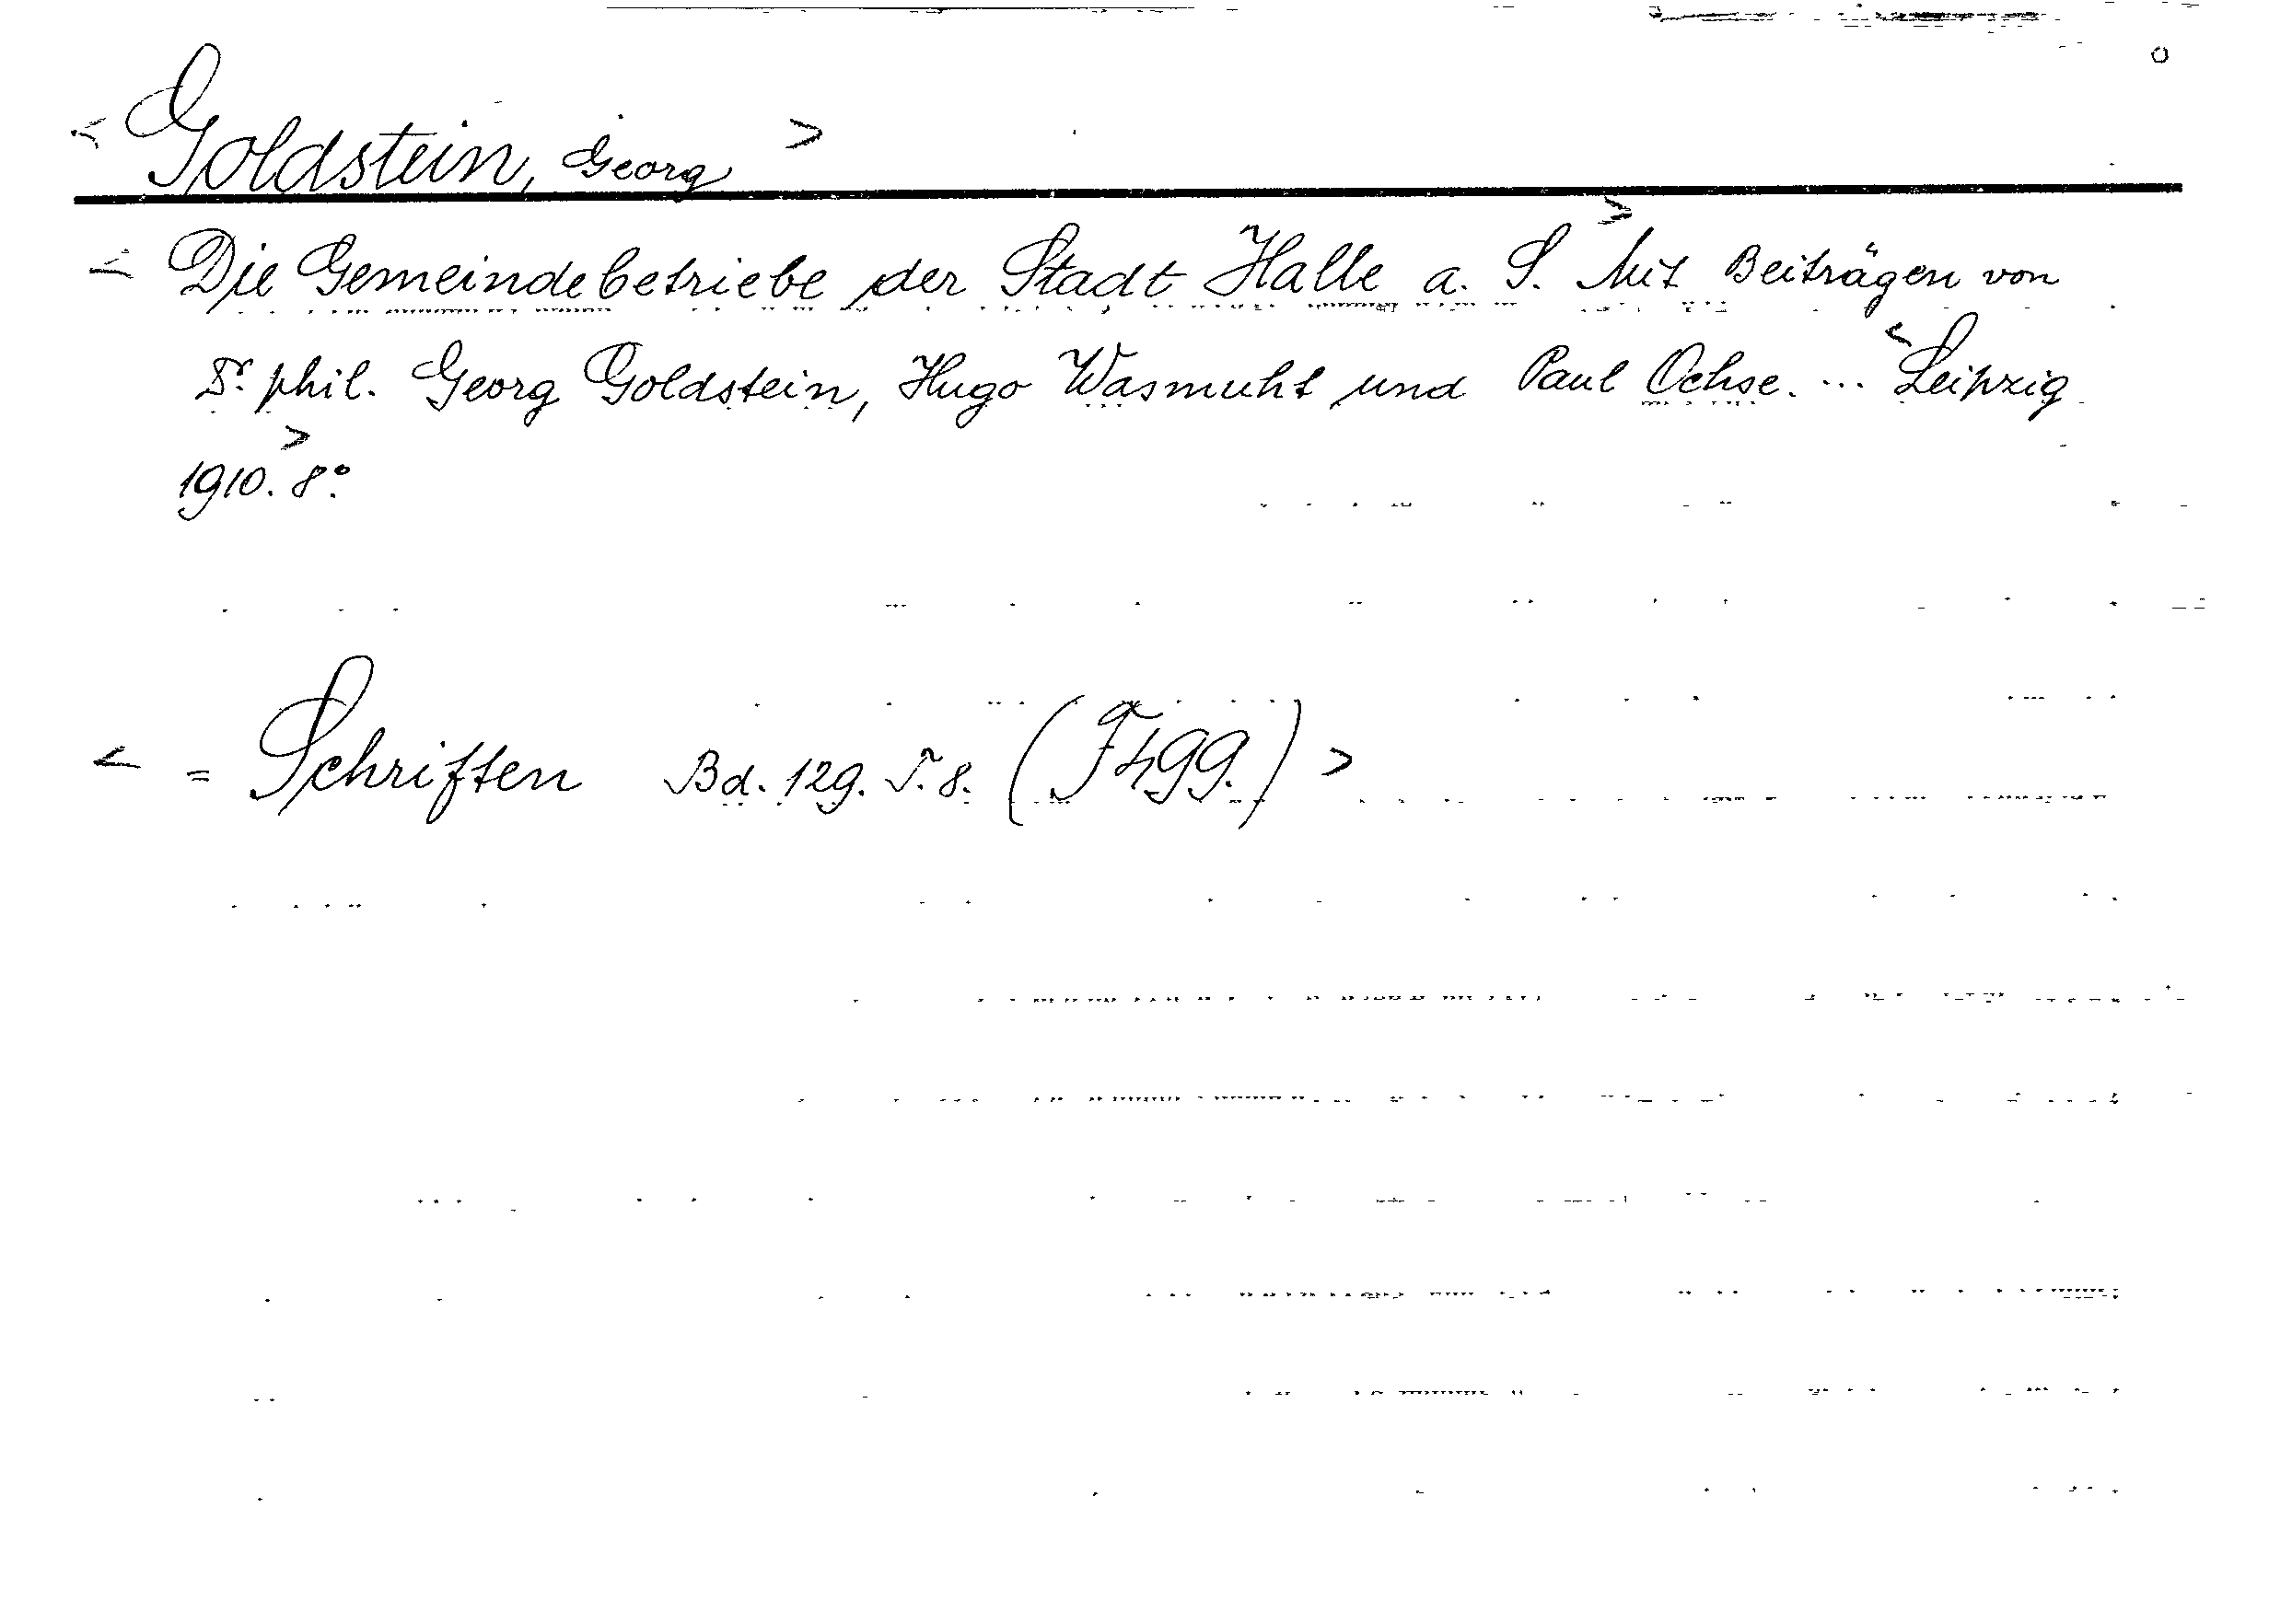 < Goldstein, Georg >
< Die Gemeindebetriebe der Stadt Halle a. S. > Mit Beiträgen von
Dr. phil. Georg Goldstein, Hugo Wasmuht und Paul Ochse. ... < Leipzig
1910. > 8°.
< = Schriften Bd. 129. T. 8. (F499.) >